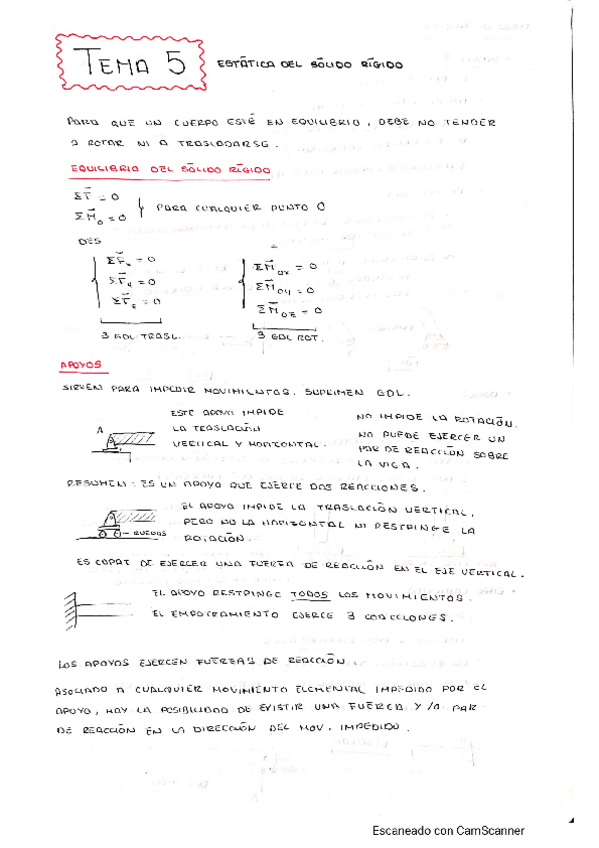 TEMA 5 ESTÁTICA DEL SÓLIDO RÍGIDO
PARA QUE UN CUERPO ESTÉ EN EQUILIBRIO, DEBE NO TENDER
A ROTAR NI A TRASLADARSE.
EQUILIBRIO DEL SÓLIDO RÍGIDO
ΣF⃗ = 0
ΣM⃗o = 0 } PARA CUALQUIER PUNTO O
DES
ΣF⃗x = 0 ΣM⃗ox = 0
ΣF⃗y = 0 ΣM⃗oy = 0
ΣF⃗z = 0 ΣM⃗oz = 0
3 GDL TRASL. 3 GDL ROT.
APOYOS
SIRVEN PARA IMPEDIR MOVIMIENTOS. SUPRIMEN GDL.
A
ESTE APOYO IMPIDE
LA TRASLACIÓN
VERTICAL Y HORIZONTAL.
NO IMPIDE LA ROTACIÓN.
NO PUEDE EJERCER UN
PAR DE REACCIÓN SOBRE
LA VIGA.
RESUMEN: ES UN APOYO QUE EJERCE DOS REACCIONES.
EL APOYO IMPIDE LA TRASLACIÓN VERTICAL,
PERO NO LA HORIZONTAL NI RESTRINGE LA
RUEDAS
ROTACIÓN.
ES CAPAZ DE EJERCER UNA FUERZA DE REACCIÓN EN EL EJE VERTICAL.
EL APOYO RESTRINGE TODOS LOS MOVIMIENTOS.
EL EMPOTRAMIENTO EJERCE 3 COACCIONES.
LOS APOYOS EJERCEN FUERZAS DE REACCIÓN
ASOCIADO A CUALQUIER MOVIMIENTO ELEMENTAL IMPEDIDO POR EL
APOYO, HAY LA POSIBILIDAD DE EXISTIR UNA FUERZA Y/O PAR
DE REACCIÓN EN LA DIRECCIÓN DEL MOV. IMPEDIDO.
Escaneado con CamScanner